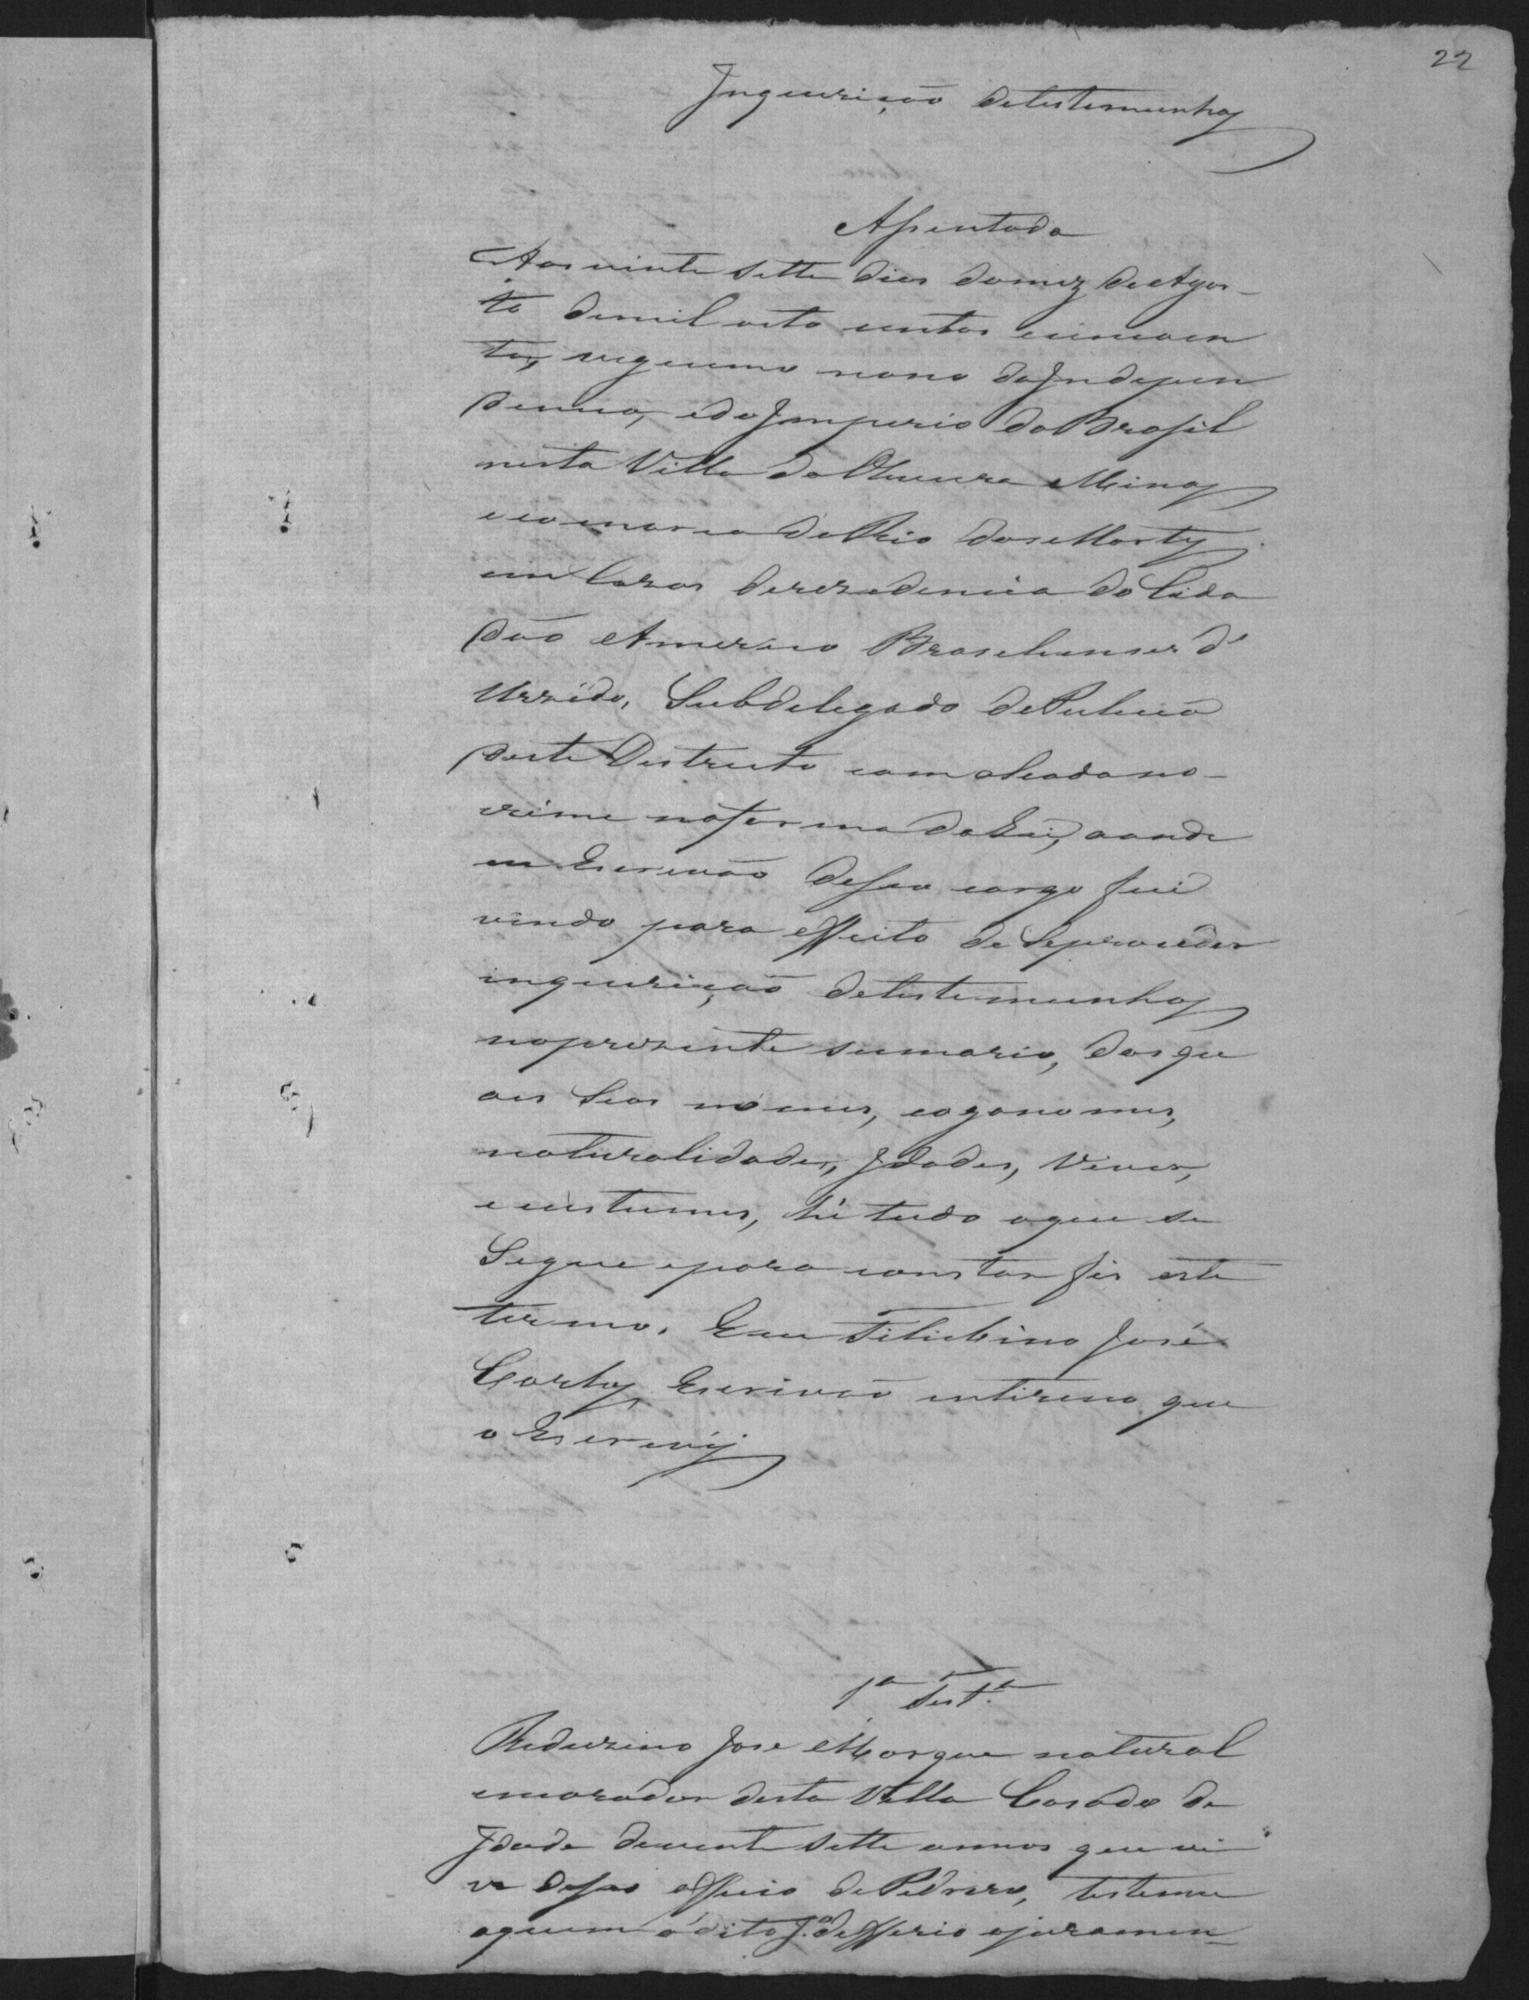 22
Inquirição detestemunhas
Assentada
Aos vinte sette dias domez deAgos-
to demil oito centos cincoen
ta, vegecimo nono daIndepen
dencia, edoImperio doBrasil
nesta Villa daOliveira Minas
ecomarca doRio dasMortes
em Cazas derezedencia do Cida
dão Americo Brasiliense d'
Urzedo, Subdelegado dePulicia
deste Destricto com alcada no-
crime naforma daLei, aonde
eu Escrivão deseo cargo fui
vindo para effeito de Seproceder
inquirição detestemunhas
nopresente sumario, dosqu
aes Seos nomes, cogonomes,
naturalidades, Idades, Viver,
ecustumes, hé tudo oque se
Segue epara constar fis este
termo. Eu José
Escrivão enterino que
o Escrevij
1ª Testª
Jose Marque natural
emorador desta Villa Casado de
Idade devente sette annos que vi
ve deseo officio dePedrero, testemu
aquem o dito Jᵉ defferio ojuramen-